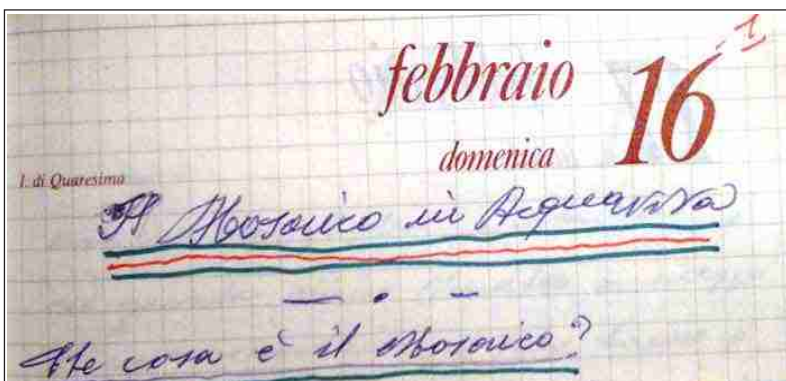 febbraio 16 -1
domenica
I. di Quaresima
Il Mosaico in Acquaviva
Che cosa è il Mosaico?